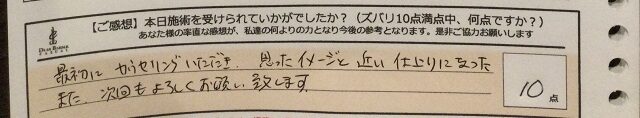 【ご感想】本日施術を受けられていかがでしたか？（ズバリ10点満点中、何点ですか？）
あなた様の率直な感想が、私達の何よりの力となり今後の参考となります。是非ご協力お願いします
最初に カウセリングいただき、思ったイメージと 近い 仕上りになった
また、次回もよろしくお願い致します。
10点